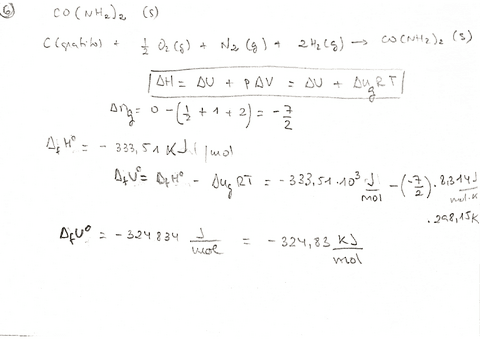 6) CO(NH₂)₂ (s)
C(grafito) + 1/2 O₂(g) + N₂(g) + 2H₂(g) → CO(NH₂)₂ (s)
ΔH = ΔU + PΔV = ΔU + Δn_g RT
Δn_g = 0 - (1/2 + 1 + 2) = -7/2
Δ_f H° = -333,51 KJ/mol
Δ_f U° = Δ_f H° - Δn_g RT = -333,51·10³ J/mol - (-7/2)·8,314 J/mol·K
·298,15K
Δ_f U° = -324834 J/mol = -324,83 KJ/mol